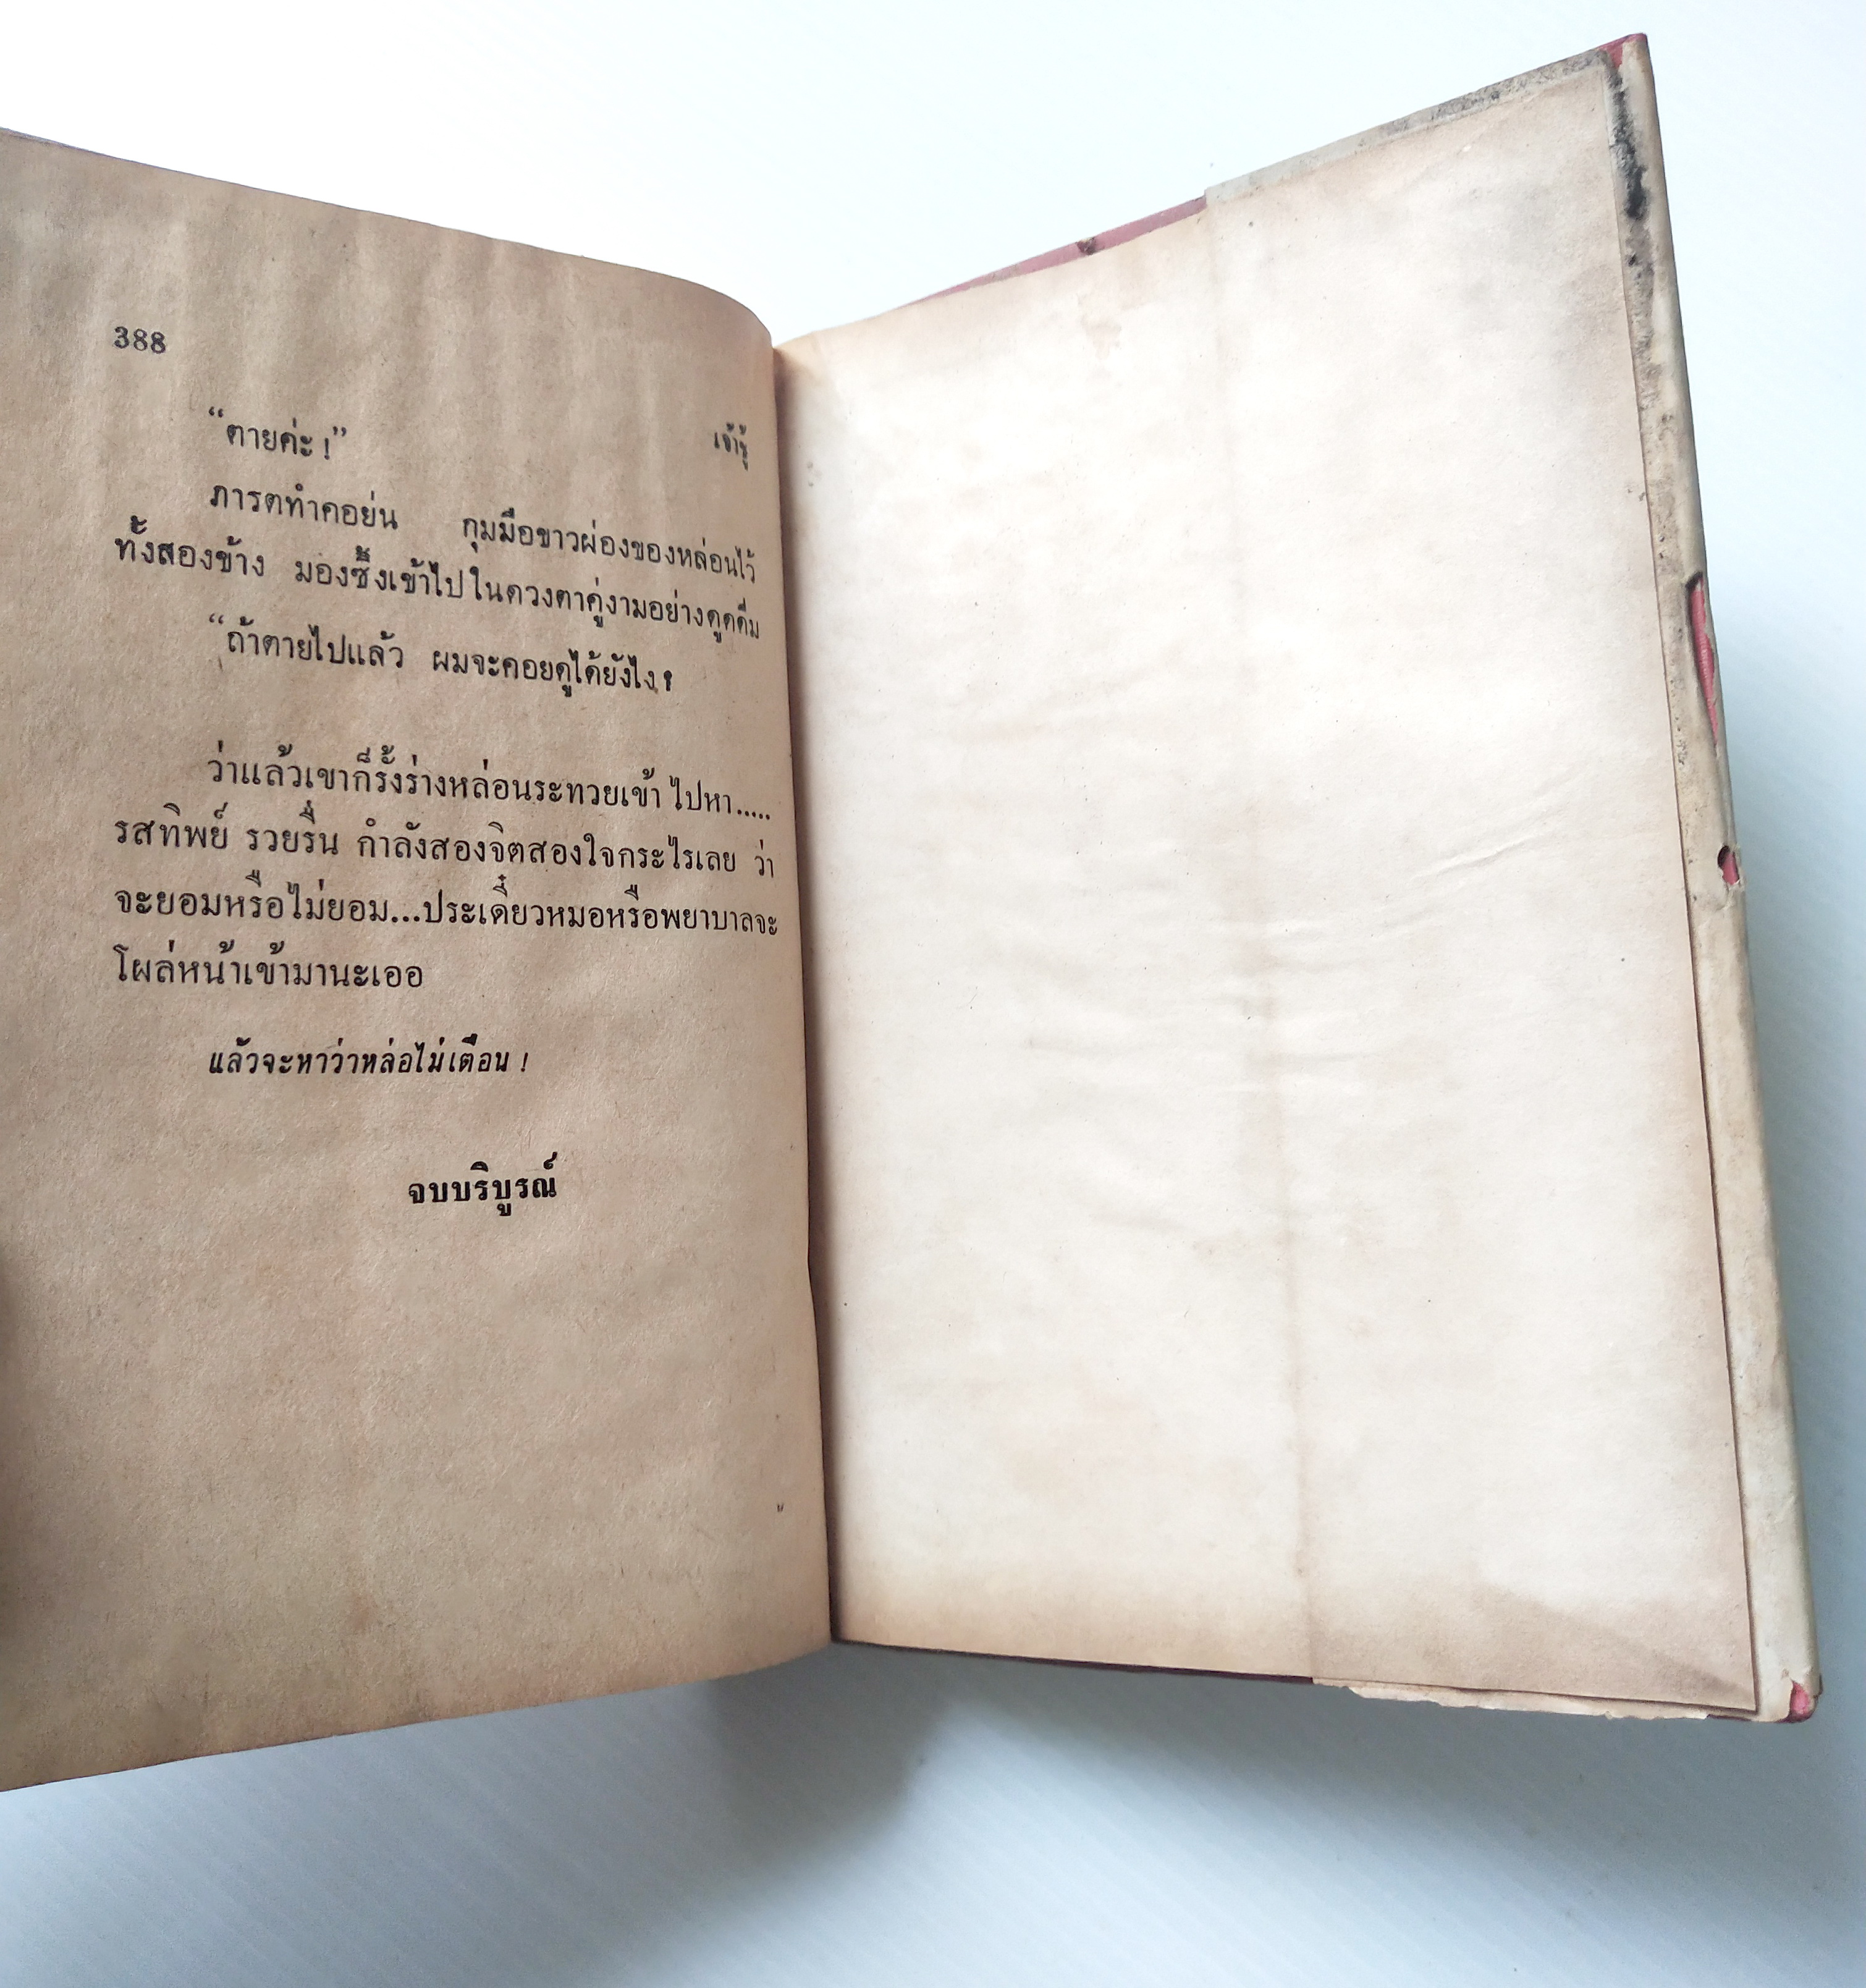 388
เจ้าชู้
“ตายค่ะ !”
ภารตทำคอย่น กุมมือขาวผ่องของหล่อนไว้
ทั้งสองข้าง มองซึ้งเข้าไปในดวงตาคู่งามอย่างดูดดื่ม
“ถ้าตายไปแล้ว ผมจะคอยดูได้ยังไง ?
ว่าแล้วเขาก็รั้งร่างหล่อนระทวยเข้าไปหา.....
รสทิพย์ รวยรื่น กำลังสองจิตสองใจกระไรเลย ว่า
จะยอมหรือไม่ยอม...ประเดี๋ยวหมอหรือพยาบาลจะ
โผล่หน้าเข้ามานะเออ
แล้วจะหาว่าหล่อไม่เตือน !
จบบริบูรณ์